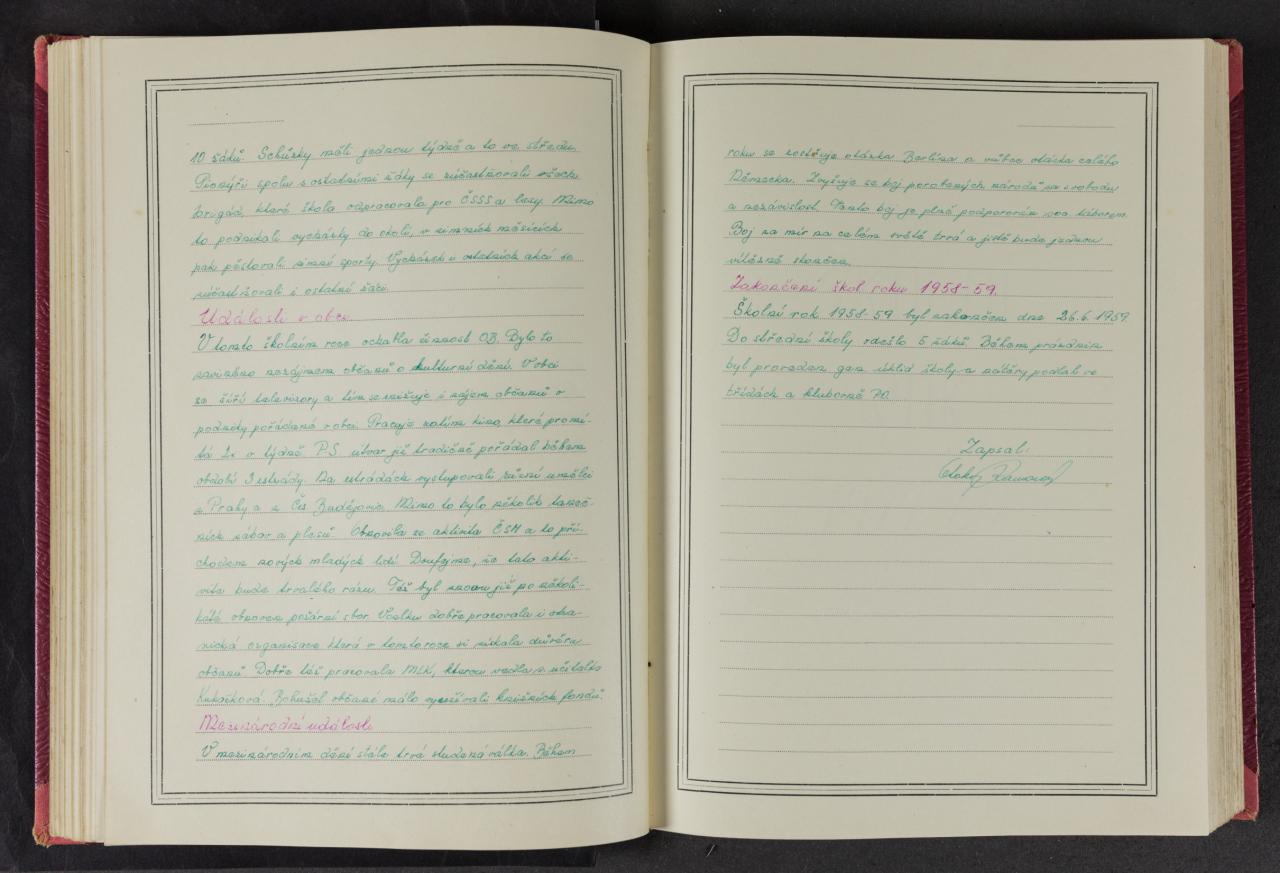 10 žáků. Schůzky měli jednou týdně a to ve středu.
Pionýři spolu s ostatními žáky se zúčastňovali všech
brigád, které škola odpracovala pro ČSSS a lesy. Mimo
to podnikali vycházky do okolí, v zimních měsících
pak pěstovali zimní sporty. Vycházek i ostatních akcí se
zúčastňovali i ostatní žáci.
Události v obci.
V tomto školním roce ochabla činnost OB. Bylo to
zaviněno nezájmem občanů o kulturní dění. V obci
se šíří televisory a tím se snižuje i zájem občanů o
podniky pořádané v obci. Pracuje zatím kino, které promí-
tá 2x v týdně. P.S. útvar již tradičně pořádal během
období 3 estrády. Na estrádách vystupovali různí umělci
z Prahy a z Čes. Budějovic. Mimo to bylo několik taneč-
ních zábav a plesů. Obnovila se aktivita ČSM a to pří-
chodem nových mladých lidí. Doufejme, že tato akti-
vita bude trvalého rázu. Též byl znovu již po několi-
káté obnoven požární sbor. Vcelku dobře pracovala i stra-
nická organisace která v tomto roce si získala důvěru
občanů. Dobře též pracovala MLK, kterou vedla s. učitelka
Kukačková. Bohužel občané málo využívali knižních fondů.
Mezinárodní události
V mezinárodním dění stále trvá studená válka. Během
roku se zostřuje otázka Berlína a vůbec otázka celého
Německa. Zvyšuje se boj porobených národů za svobodu
a nezávislost. Tento boj je plně podporován soc. táborem.
Boj za mír na celém světě trvá a jistě bude jednou
vítězně skončen.
Zakončení škol. roku 1958-59.
Školní rok 1958-59 byl zakončen dne 26.6.1959.
Do střední školy odešlo 5 žáků. Během prázdnin
byl proveden gen. úklid školy a nátěry podlah ve
třídách a klubovně PO.
Zapsal: